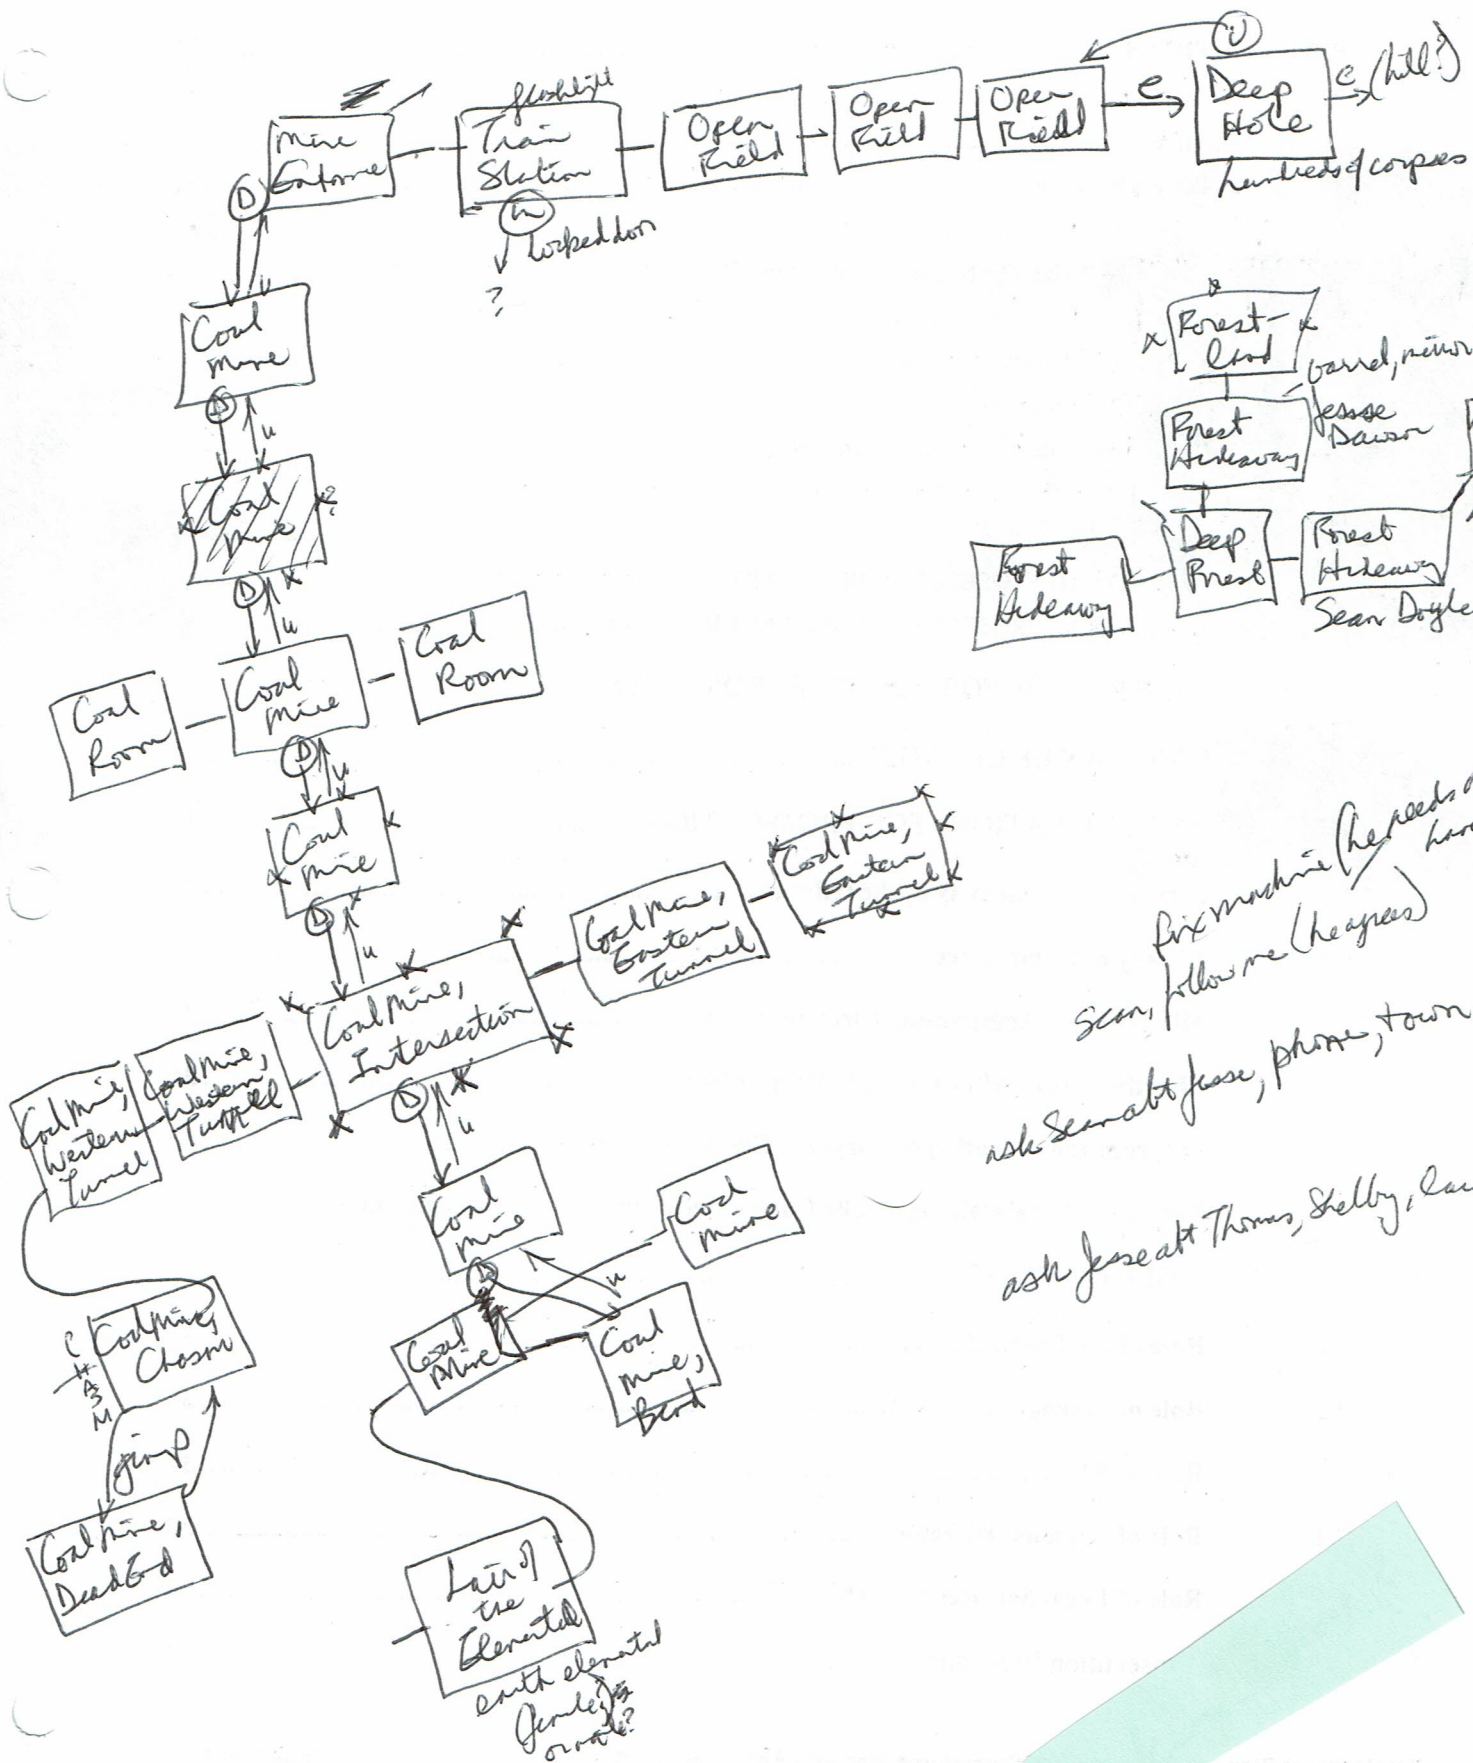 flashlight
Mine
Entrance
Train
Station
Open
Field
Open
Field
Open
Field
e
U
Deep
Hole
e
(hill?)
hundreds of corpses
D
U
locked door
?
Coal
Mine
D
u
Coal
Mine
?
D
u
Coal
Room
Coal
Mine
Coal
Room
D
u
Coal
Mine
D
u
Coal Mine,
Intersection
Coal Mine,
Eastern
Tunnel
Coal Mine,
Eastern
Tunnel
Coal Mine,
Western
Tunnel
Coal Mine,
Western
Tunnel
D
u
Coal
Mine
D
u
Coal
Mine
Coal
Mine
Coal
Mine,
Bend
CHASM
Coal Mine,
Chasm
jump
Coal Mine,
Dead End
Lair of
the
Elemental
earth elemental
Forest-
land
barrel, mirror
Forest
Hideaway
Jessse
Dawson
Forest
Hideaway
Deep
Forest
Forest
Hideaway
Sean Doyle
fix machine (he needs
Sean, follow me (he agrees)
ask Sean abt Jesse, phone, town
ask Jesse abt Thomas, Shelby,